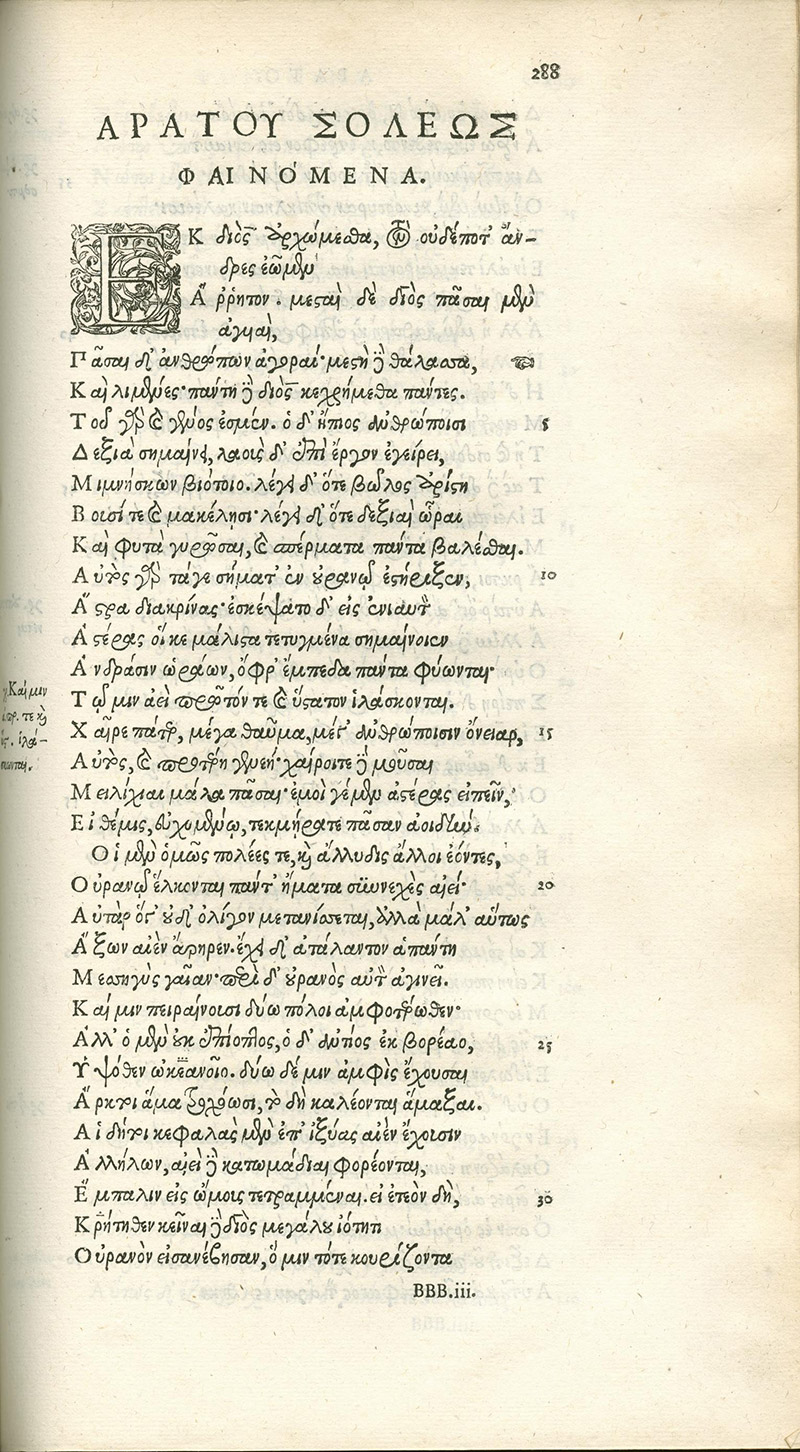 288
ΑΡΑΤΟΥ ΣΟΛΕΩΣ
ΦΑΙΝΌΜΕΝΑ.
ΕΚ διὸς ἀρχώμεσθα, τὸν οὐδέποτ' ἄν-
δρες ἐῶμεν
Ἄρρητον. μεσταὶ δὲ διὸς πᾶσαι μὲν
ἀγυιαὶ,
Πᾶσαι δ' ἀνθρώπων ἀγοραί· μεστὴ δὲ θάλασσα,
Καὶ λιμένες· πάντη δὲ διὸς κεχρήμεθα πάντες.
Τοῦ γὰρ καὶ γένος ἐσμέν. ὁ δ' ἤπιος ἀνθρώποισι 5
Δεξιὰ σημαίνει, λαοὺς δ' ἐπὶ ἔργον ἐγείρει,
Μιμνήσκων βιότοιο. λέγει δ' ὅτε βῶλος ἀρίστη
Βουσί τε καὶ μακέλησι· λέγει δ' ὅτε δεξιαὶ ὧραι
Καὶ φυτὰ γυρῶσαι, καὶ σπέρματα πάντα βαλέσθαι.
Αὐτὸς γὰρ τάγε σήματ' ἐν οὐρανῷ ἐστήριξεν, 10
Ἄστρα διακρίνας· ἐσκέψατο δ' εἰς ἐνιαυτὸν
Ἀστέρας οἵ κε μάλιστα τετυγμένα σημαίνοιεν
Ἀνδράσιν ὡράων, ὄφρ' ἔμπεδα πάντα φύωνται·
Τῷ μιν ἀεὶ πρῶτόν τε καὶ ὕστατον ἱλάσκονται.
Χαῖρε πάτερ, μέγα θαῦμα, μέγ' ἀνθρώποισιν ὄνειαρ, 15
Αὐτὸς, καὶ προτέρη γενεή· χαίροιτε δὲ μοῦσαι
Μειλίχιαι μάλα πᾶσαι· ἐμοί γέ μὲν ἀστέρας εἰπεῖν,
Εἰ θέμις, εὐχομένῳ, τεκμήρατε πᾶσαν ἀοιδήν.
Οἱ μὲν ὁμῶς πολέες τε, καὶ ἄλλυδις ἄλλοι ἐόντες,
Οὐρανῷ ἕλκονται πάντ' ἤματα συνεχὲς αἰεί· 20
Αὐτὰρ ὅγ' οὐδ' ὀλίγον μετανίσσεται, ἀλλὰ μάλ' αὔτως
Ἄξων αἰὲν ἄρηρεν. ἔχει δ' ἀτάλαντον ἁπάντη
Μεσσηγὺς γαῖαν· περὶ δ' οὐρανὸς αὐτὸν ἀγινεῖ.
Καί μιν πειραίνουσι δύω πόλοι ἀμφοτέρωθεν·
Ἀλλ' ὁ μὲν οὐκ ἐπίοπτος, ὁ δ' ἀντίος ἐκ βορέαο, 25
Ὑψόθεν ὠκεανοῖο. δύω δέ μιν ἀμφὶς ἔχουσαι
Ἄρκτοι ἅμα τροχόωσι, τὸ δὴ καλέονται ἅμαξαι.
Αἱ δήτοι κεφαλὰς μὲν ἐπ' ἰξύας αἰὲν ἔχουσιν
Ἀλλήλων, αἰεὶ δὲ κατωμάδιαι φορέονται,
Ἔμπαλιν εἰς ὤμους τετραμμέναι. εἰ ἐτεὸν δὴ, 30
Κρήτηθεν κεῖναί δὲ διὸς μεγάλου ἰότητι
Οὐρανὸν εἰσανέβησαν, ὅ μιν τότε κουρίζοντα
BBB.iii.